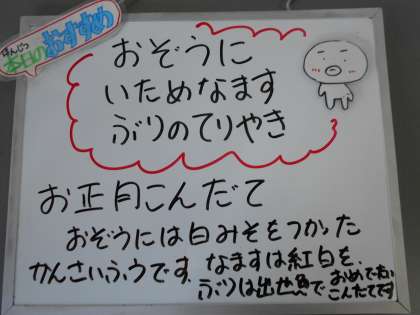 ほんじつ
本日の
おすすめ
おぞうに
いためなます
ぶりのてりやき
お正月こんだて
おぞうには白みそをつかった
かんさいふうです。なますは紅白を、
ぶりは出世魚で、おめでたい
こんだてです